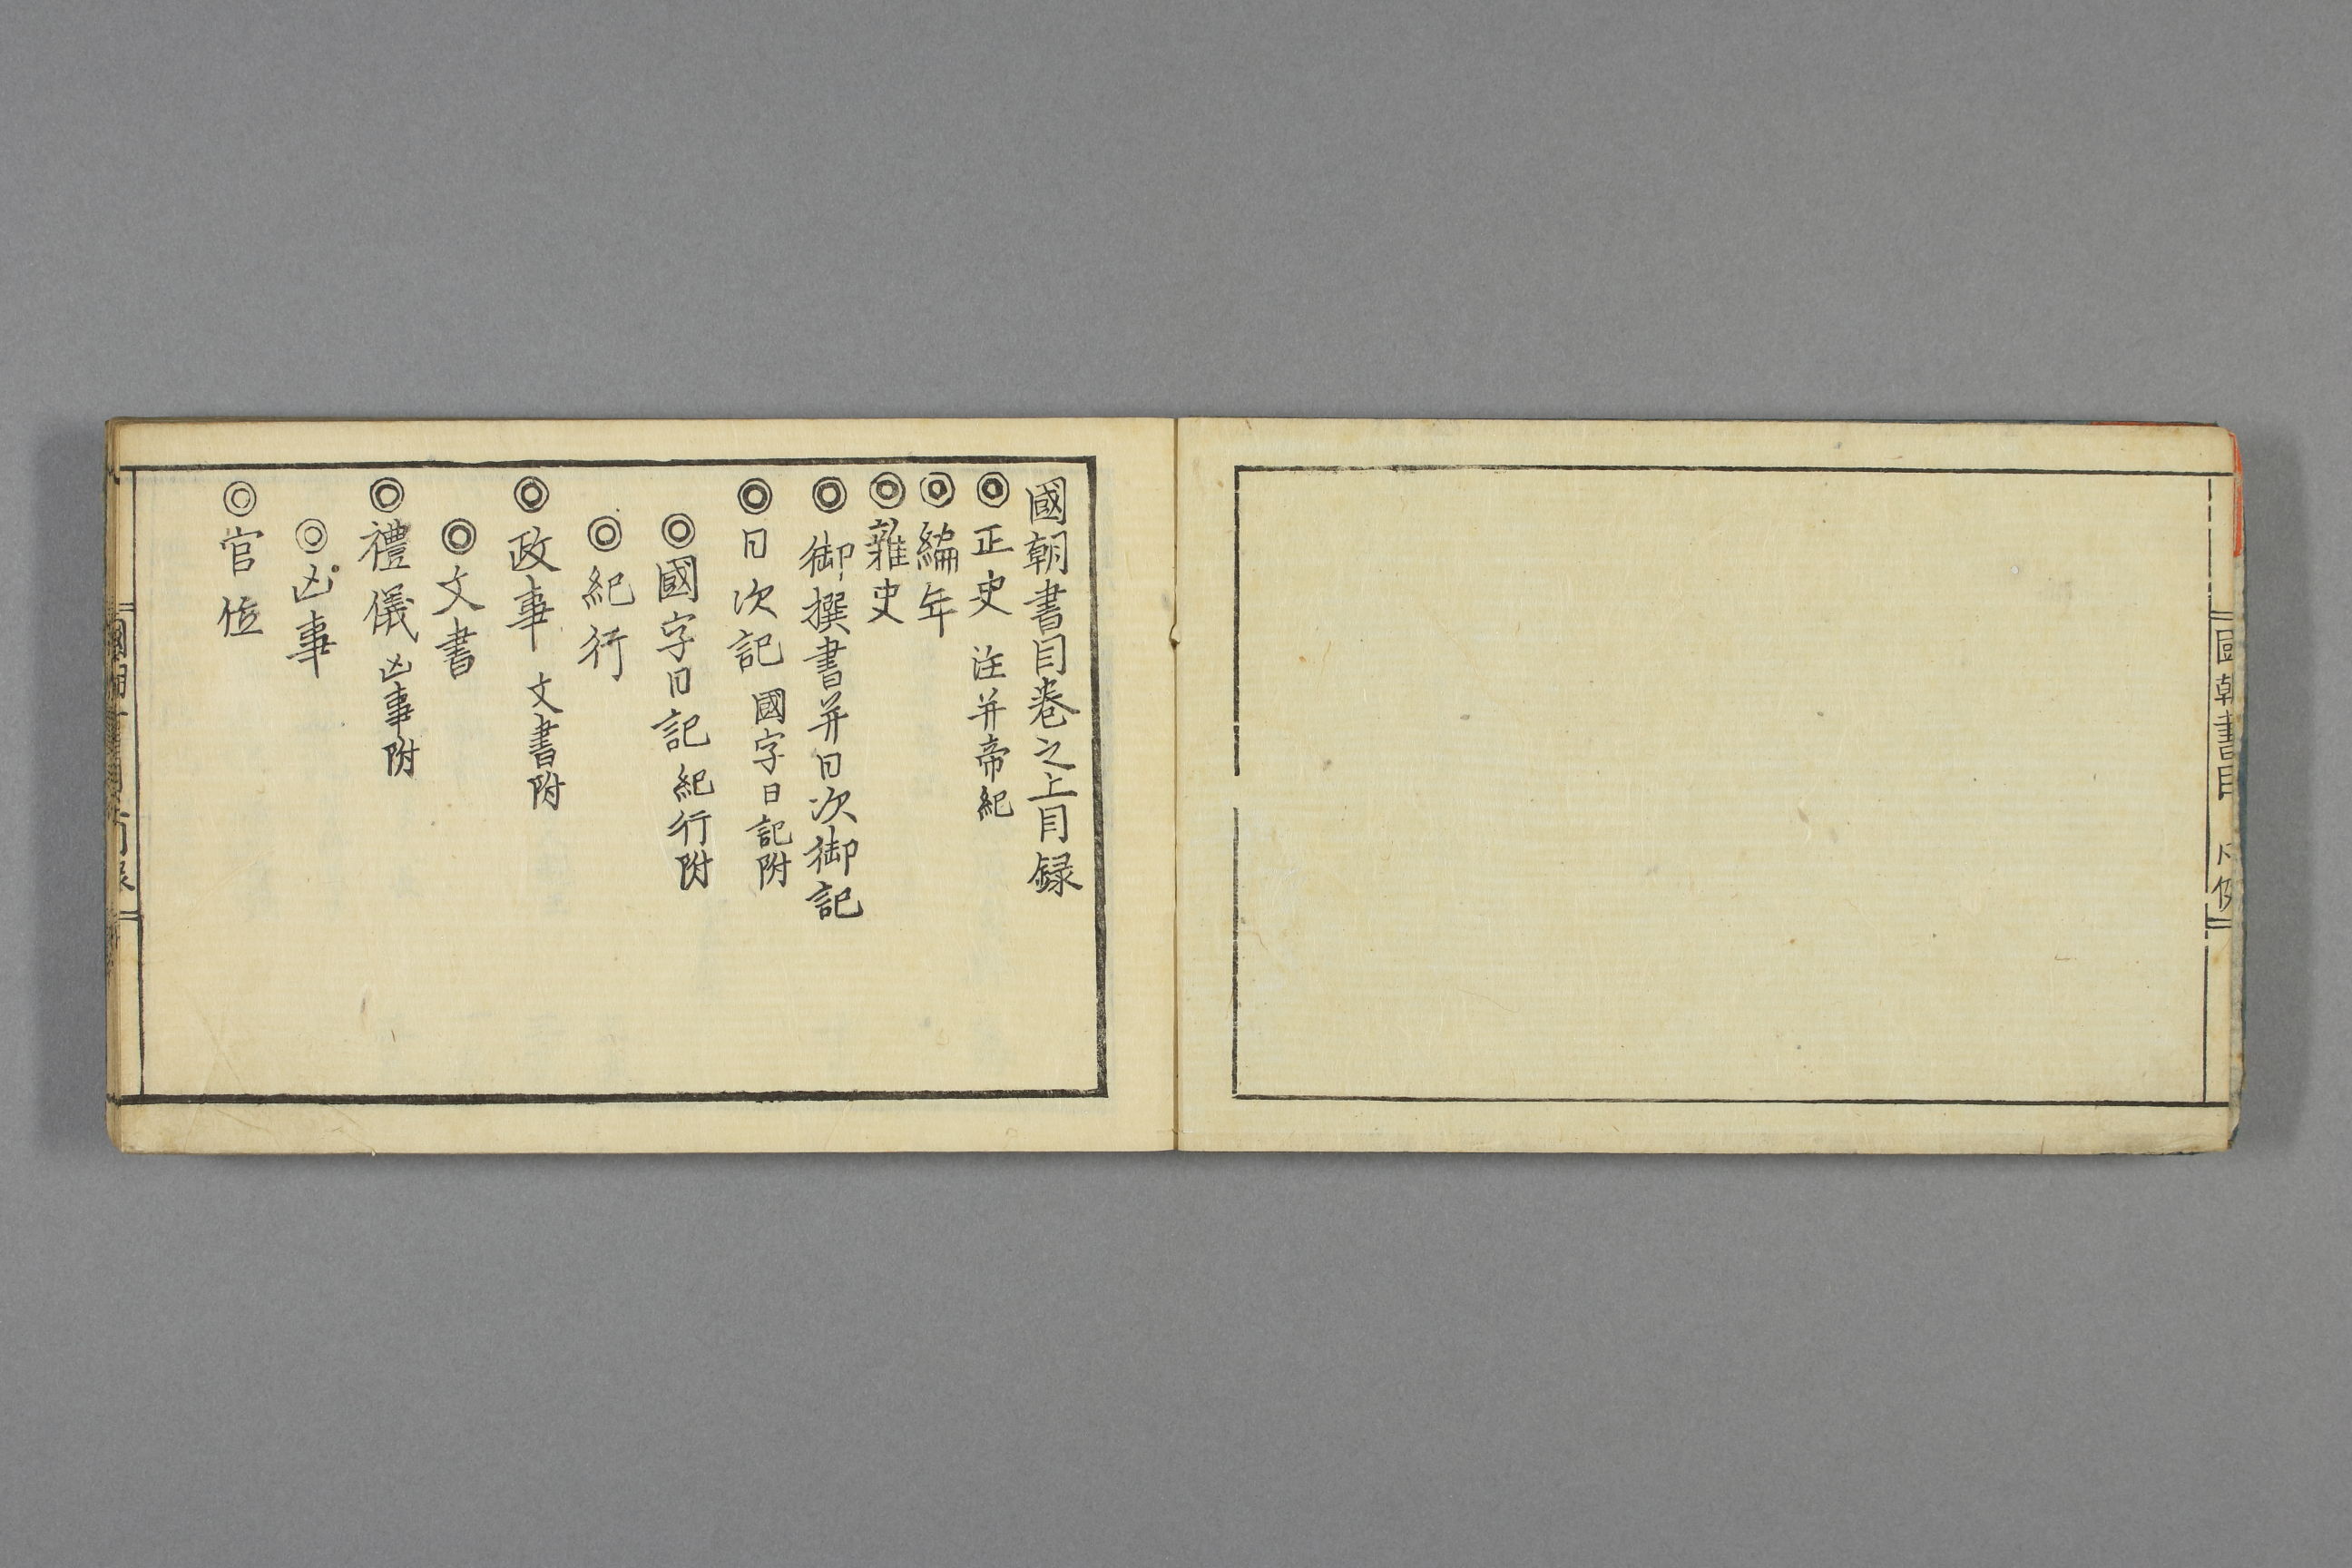 國朝書目 凡例
國朝書目巻之上目録
◎正史 注并帝紀
◎編年
◎雜史
◎御撰書并日次御記
◎日次記 國字日記附
◎國字日記 紀行附
◎紀行
◎政事 文書附
◎文書
◎禮儀 凶事附
◎凶事
◎官位